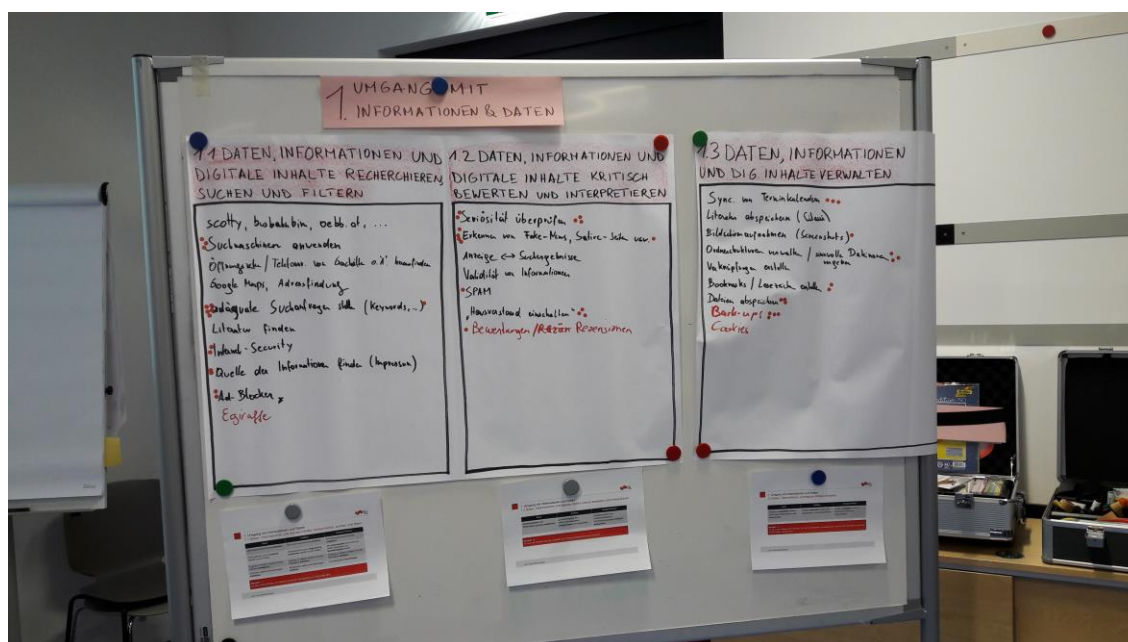 1. UMGANG MIT
INFORMATIONEN & DATEN
1.1 DATEN, INFORMATIONEN UND
DIGITALE INHALTE RECHERCHIEREN,
SUCHEN UND FILTERN
scotty, busbahnbim, oebb.at, ...
Suchmaschinen anwenden
Öffnungszeiten / Telefonnr. von Geschäften o.ä. herausfinden
Google Maps, Adressfindung
adäquate Suchanfragen stellen (Keywords,...)
Literatur finden
Internet-Security
Quelle der Informationen finden (Impressum)
Ad-Blocker
Egiraffe
1.2 DATEN, INFORMATIONEN UND
DIGITALE INHALTE KRITISCH
BEWERTEN UND INTERPRETIEREN
Seriösität überprüfen
Erkennen von Fake-News, Satire-Seiten usw.
Anzeige ↔ Suchergebnisse
Validität von Informationen
SPAM
„Hausverstand einschalten"
Bewertungen / Rezensionen
1.3 DATEN, INFORMATIONEN
UND DIG. INHALTE VERWALTEN
Sync. von Terminkalendern
Literatur abspeichern (Citavi)
Bildschirmaufnahmen (Screenshots)
Ordnerstrukturen verwalten / sinnvolle Dateinamen
vergeben
Verknüpfungen erstellen
Bookmarks / Lesezeichen erstellen
Dateien abspeichern
Back-ups
Cookies